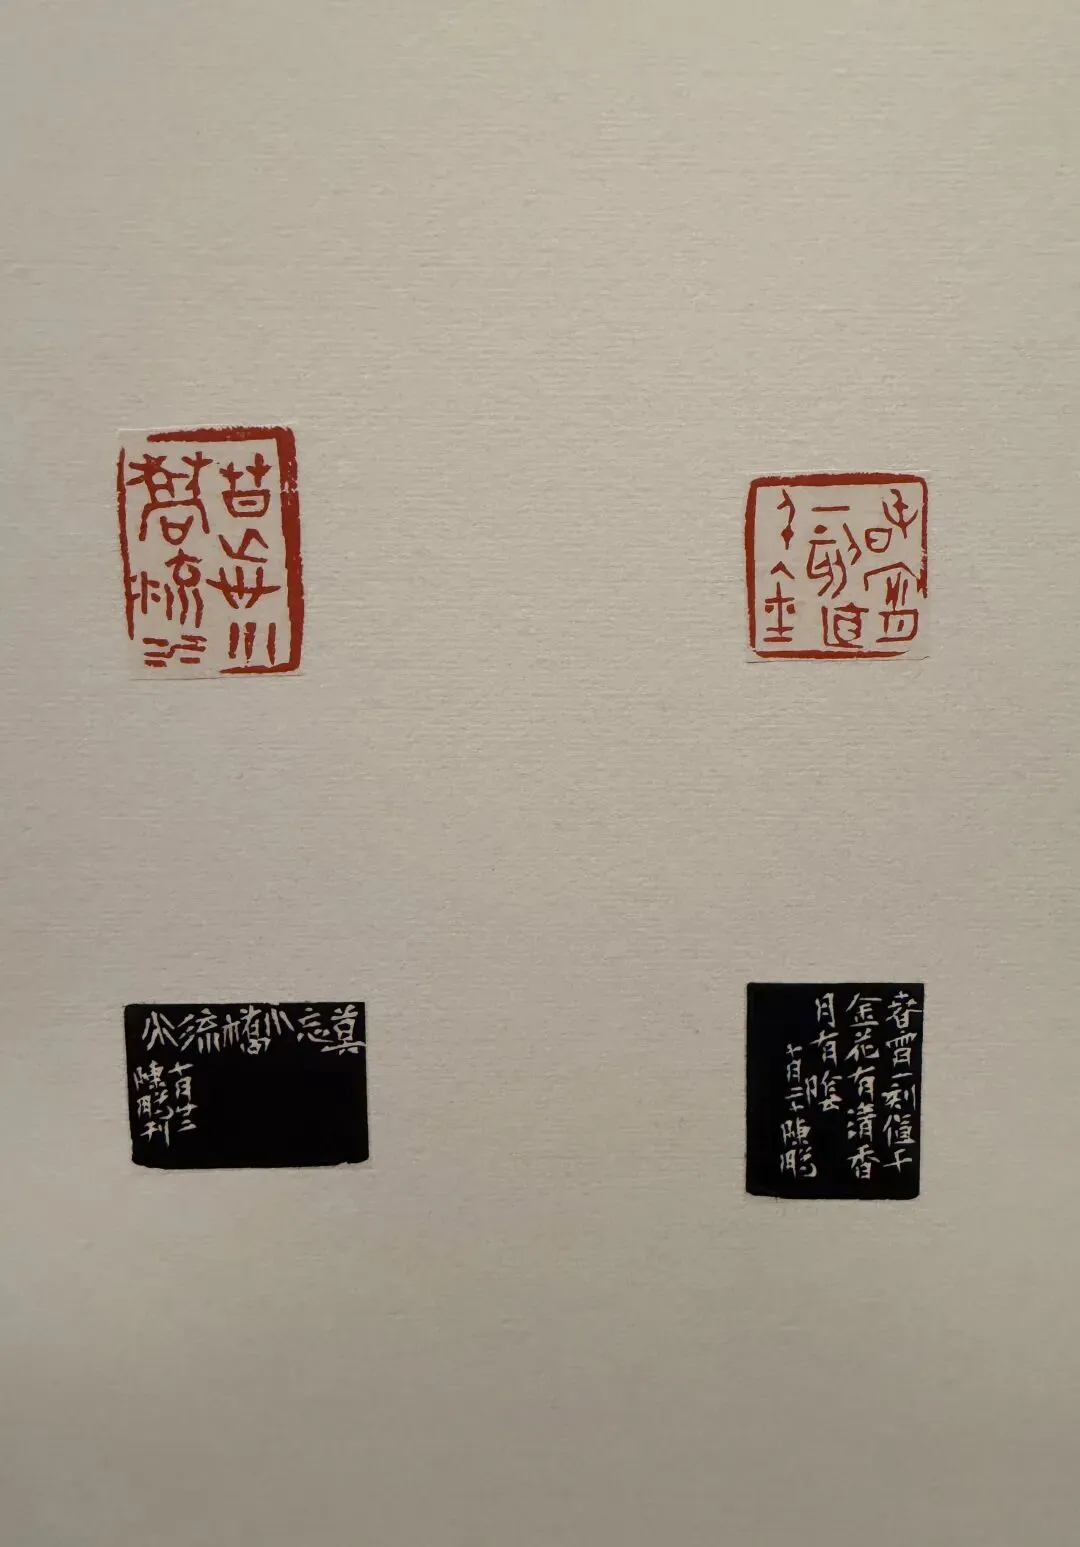 小
橋流水
春宵
一刻直
千金
莫忘小橋流水
十月廿三
陳鵬刊
春宵一刻值千
金花有清香
月有陰
十月二十陳鵬